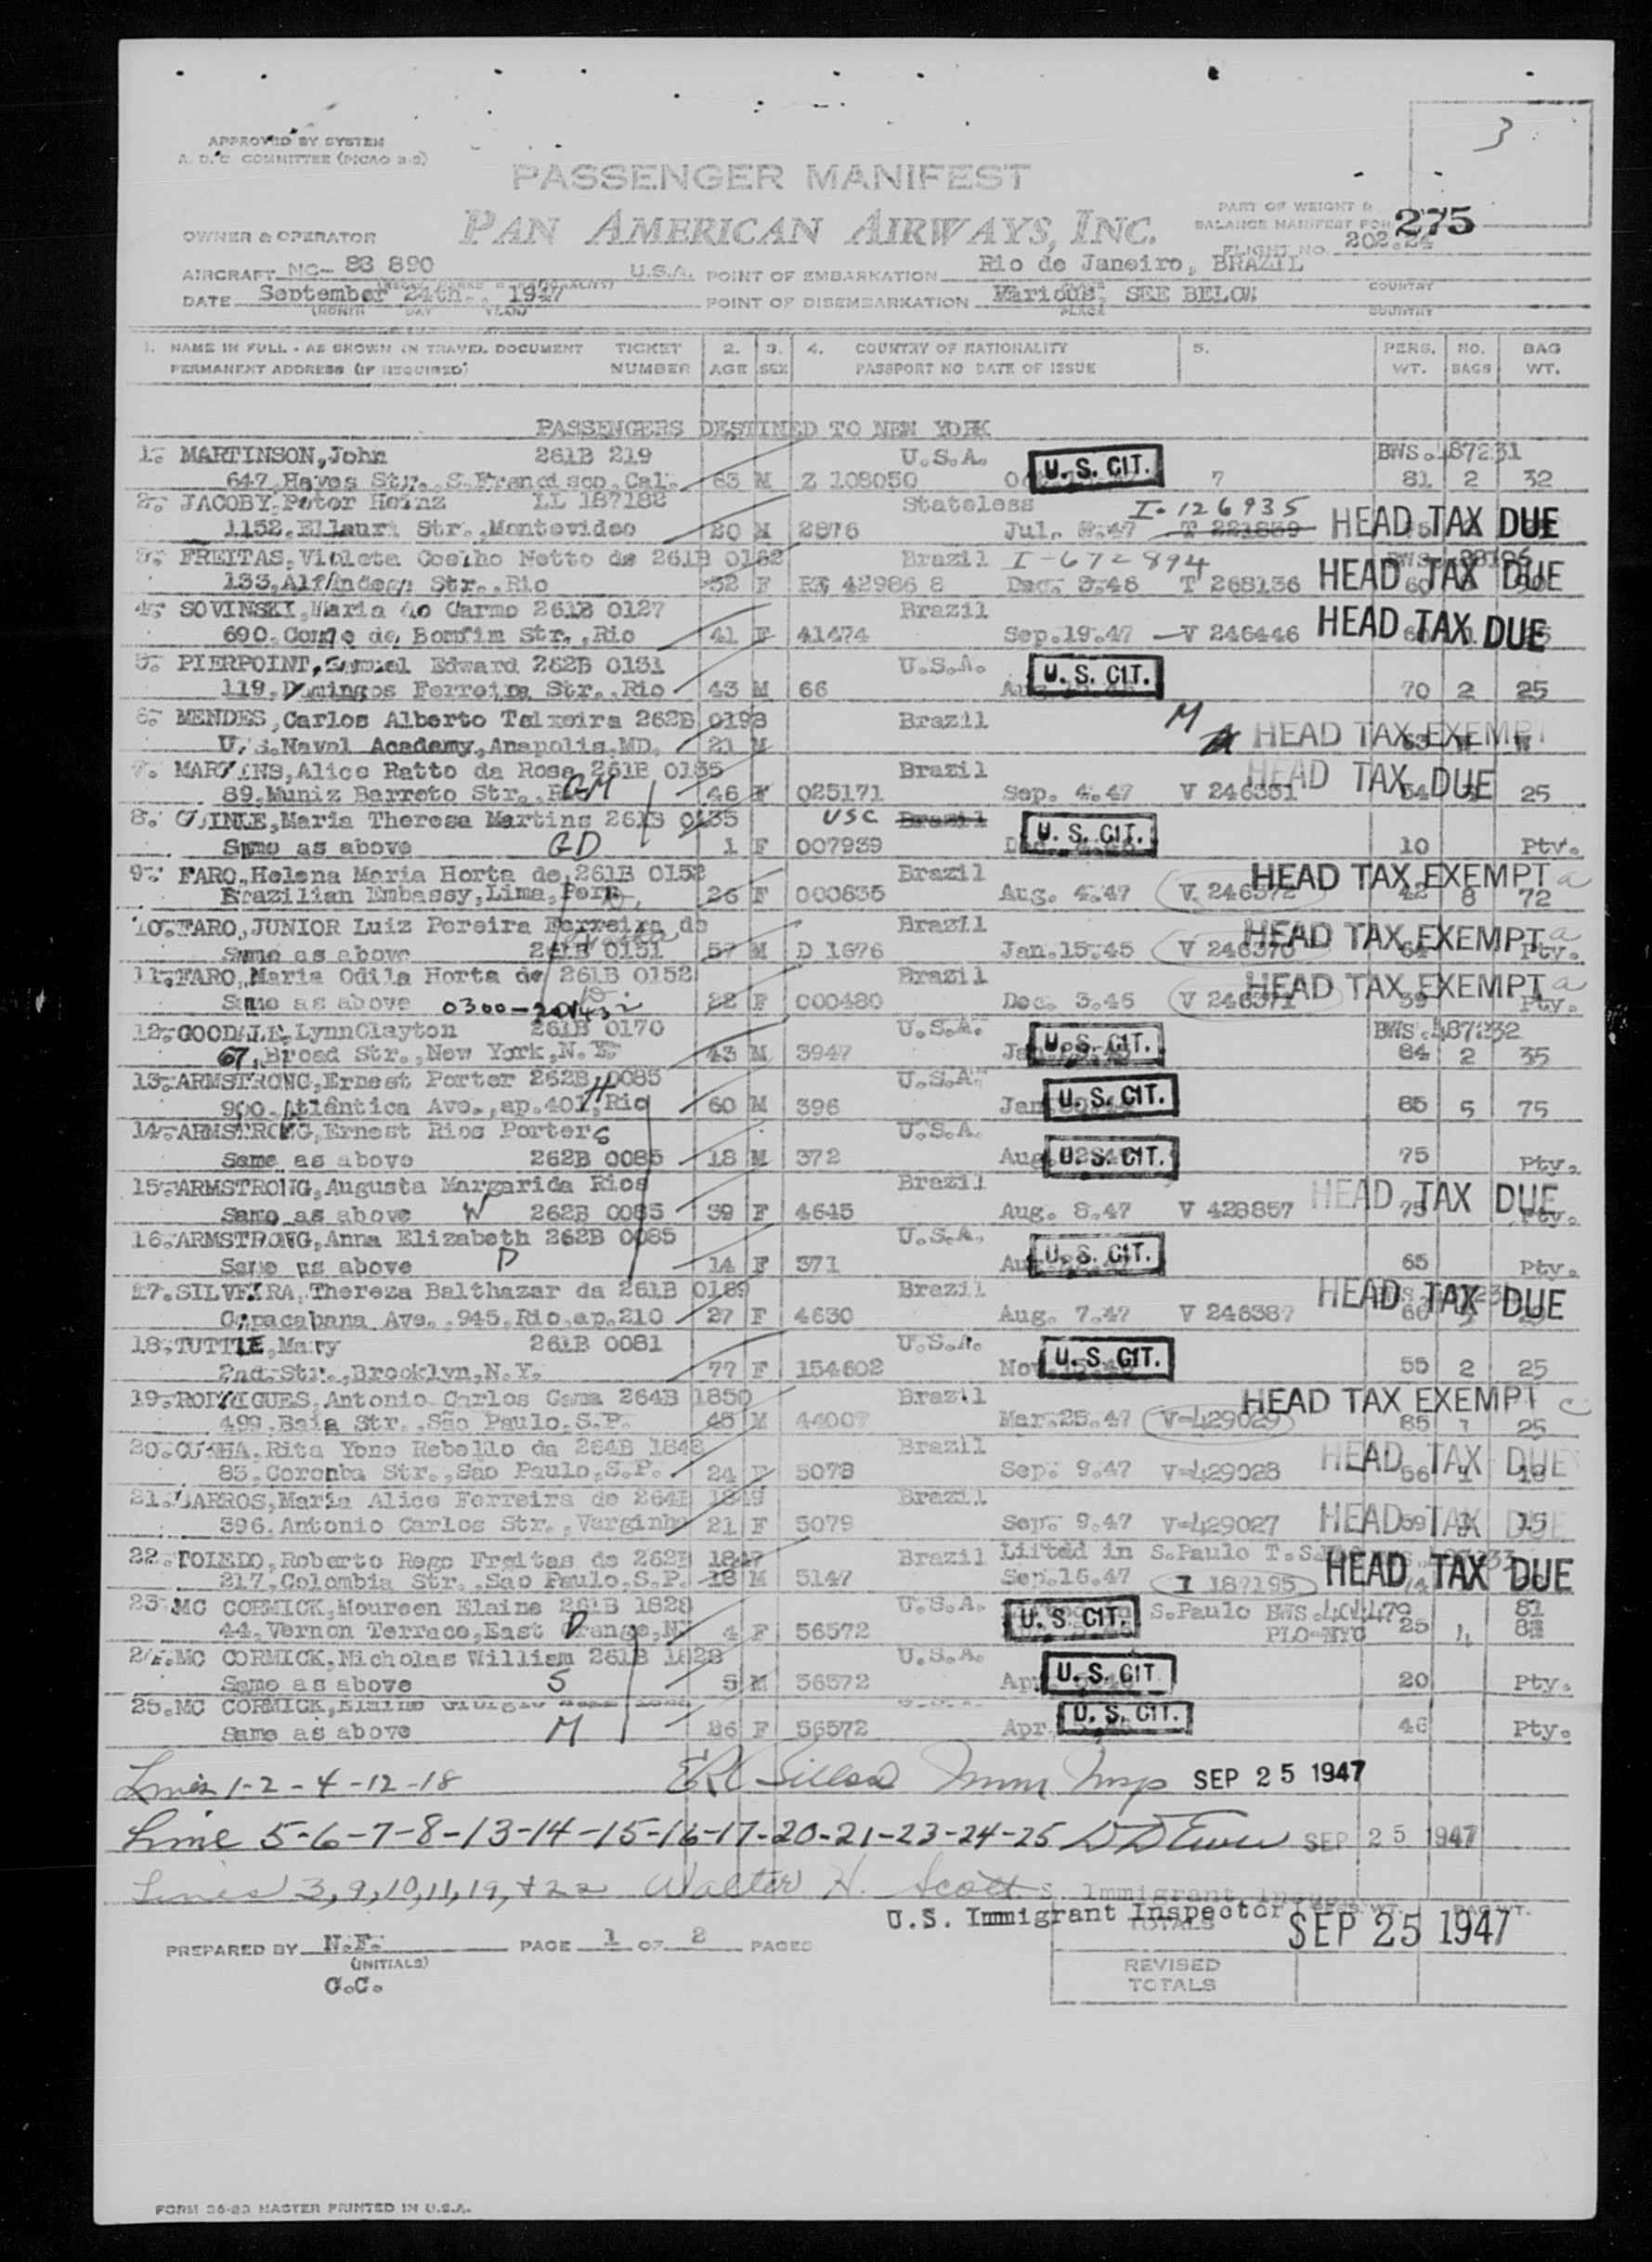 3
APPROVED BY SYSTEM
A.D.C. COMMITTEE (PICAO 3-2)
PASSENGER MANIFEST
PAN AMERICAN AIRWAYS, INC.
OWNER & OPERATOR
PART OF WEIGHT &
BALANCE MANIFEST FOR
275
FLIGHT NO. 202.24
AIRCRAFT NC- 88 890 U.S.A. POINT OF EMBARKATION Rio de Janeiro, BRAZIL
COUNTRY
DATE September 24th., 1947 POINT OF DISEMBARKATION Marious, SEE BELOW
(MONTH DAY YEAR) PLACE COUNTRY
1. NAME IN FULL - AS SHOWN IN TRAVEL DOCUMENT TICKET 2. 3. 4. COUNTRY OF NATIONALITY 5. PERS. NO. BAG
PERMANENT ADDRESS (IF REQUIRED) NUMBER AGE SEX PASSPORT NO DATE OF ISSUE WT. BAGS WT.
PASSENGERS DESTINED TO NEW YORK
1. MARTINSON, John 261B 219 U.S.A. BWS. 487231
647, Hayes Str., S. Francisco, Cal. 63 M Z 108050 U. S. CIT. 7 81 2 32
2. JACOBY, Peter Heinz LL 187182 Stateless I-126935
1152, Ellauri Str., Montevideo 20 M 2876 Jul. 47 T 221839 HEAD TAX DUE
3. FREITAS, Violeta Coelho Netto de 261B 0162 Brazil I-672894
133, Alfândega Str., Rio 52 F RE 42986 8 Dec. 3.46 T 268136 HEAD TAX DUE
4. SOVINSKI, Maria do Carmo 261B 0127 Brazil
690, Conde de Bomfim Str., Rio 41 F 41474 Sep.19.47 V 246446 HEAD TAX DUE
5. PIERPOINT, Samuel Edward 262B 0131 U.S.A.
119, Domingos Ferreira Str., Rio 43 M 66 U. S. CIT. 70 2 25
6. MENDES, Carlos Alberto Teixeira 262B 0198 Brazil M
U.S. Naval Academy, Anapolis, MD. 21 M HEAD TAX EXEMPT
7. MARTINS, Alice Ratto da Rosa 261B 0135 Brazil
89, Muniz Barreto Str., Rio GM 46 F 025171 Sep. 4.47 V 246351 HEAD TAX DUE 54 25
8. GUINLE, Maria Theresa Martins 261B 0135 USC Brazil
Same as above GD 1 F 007939 U. S. CIT. 10 Pty.
9. FARO, Helena Maria Horta de 261B 0152 Brazil
Brazilian Embassy, Lima, Peru 26 F 000635 Aug. 4.47 V 246372 HEAD TAX EXEMPT a 42 8 72
10. FARO, JUNIOR Luiz Pereira Ferreira de Brazil
Same as above 261B 0151 57 M D 1676 Jan.15.45 V 246370 HEAD TAX EXEMPT a 64 Pty.
11. FARO, Maria Odila Horta de 261B 0152 Brazil
Same as above 22 F 000480 Dec. 3.46 V 246371 HEAD TAX EXEMPT a 59 Pty.
12. GOODALE, LynnClayton 261B 0170 U.S.A. BWS. 487232
67, Broad Str., New York, N.Y. 43 M 3947 U. S. CIT. 84 2 35
13. ARMSTRONG, Ernest Porter 262B 0085 U.S.A.
900, Atlântica Ave., ap.401, Rio H 60 M 396 Jan U. S. CIT. 85 5 75
14. ARMSTRONG, Ernest Rios Porter S U.S.A.
Same as above 262B 0085 18 M 372 Aug U. S. CIT. 75 Pty.
15. ARMSTRONG, Augusta Margarida Rios Brazil
Same as above W 262B 0085 39 F 4645 Aug. 8.47 V 428857 HEAD TAX DUE 75 Pty.
16. ARMSTRONG, Anna Elizabeth 262B 0085 U.S.A.
Same as above D 14 F 371 U. S. CIT. 65 Pty.
17. SILVEIRA, Thereza Balthazar da 261B 0189 Brazil
Copacabana Ave., 945, Rio, ap.210 27 F 4630 Aug. 7.47 V 246387 HEAD TAX DUE
18. TUTTLE, Mary 261B 0081 U.S.A.
2nd. Str., Brooklyn, N.Y. 77 F 154602 Nov U. S. CIT. 55 2 25
19. RODRIGUES, Antonio Carlos Gama 264B 1850 Brazil
499, Baia Str., São Paulo, S.P. 45 M 44007 Mar.25.47 V-429029 HEAD TAX EXEMPT c 85 1 25
20. CUNHA, Rita Yone Rebello da 264B 1848 Brazil
83, Coromba Str., Sao Paulo, S.P. 24 F 5078 Sep. 9.47 V-429028 HEAD TAX DUE 56 1 18
21. BARROS, Maria Alice Ferreira de 264B 1849 Brazil
396, Antonio Carlos Str., Varginha 21 F 5079 Sep. 9.47 V-429027 HEAD TAX DUE 59 15
22. TOLEDO, Roberto Rego Freitas de 262B 1847 Brazil Liited in S.Paulo
217, Colombia Str., Sao Paulo, S.P. 18 M 5147 Sep.16.47 I 187195 HEAD TAX DUE
23. MC CORMICK, Moureen Elaine 261B 1828 U.S.A. S.Paulo BWS. 404479 81
44, Vernon Terrace, East Orange, NJ D 4 F 56572 U. S. CIT. PLO-NYC 25 4
24. MC CORMICK, Nicholas William 261B 1828 U.S.A.
Same as above S 5 M 56572 Ap U. S. CIT. 20 Pty.
25. MC CORMICK, Elaine
Same as above M 26 F 56572 Apr. U. S. CIT. 46 Pty.
Lines 1-2-4-12-18 SEP 25 1947
Line 5-6-7-8-13-14-15-16-17-20-21-23-24-25 SEP 25 1947
Lines 3,9,10,11,19,+22 Walter H. Scott
U.S. Immigrant Inspector SEP 25 1947
TOTALS
PREPARED BY N.F. PAGE 1 OF 2 PAGES
(INITIALS)
G.C.
REVISED
TOTALS
FORM 36-23 MASTER PRINTED IN U.S.A.